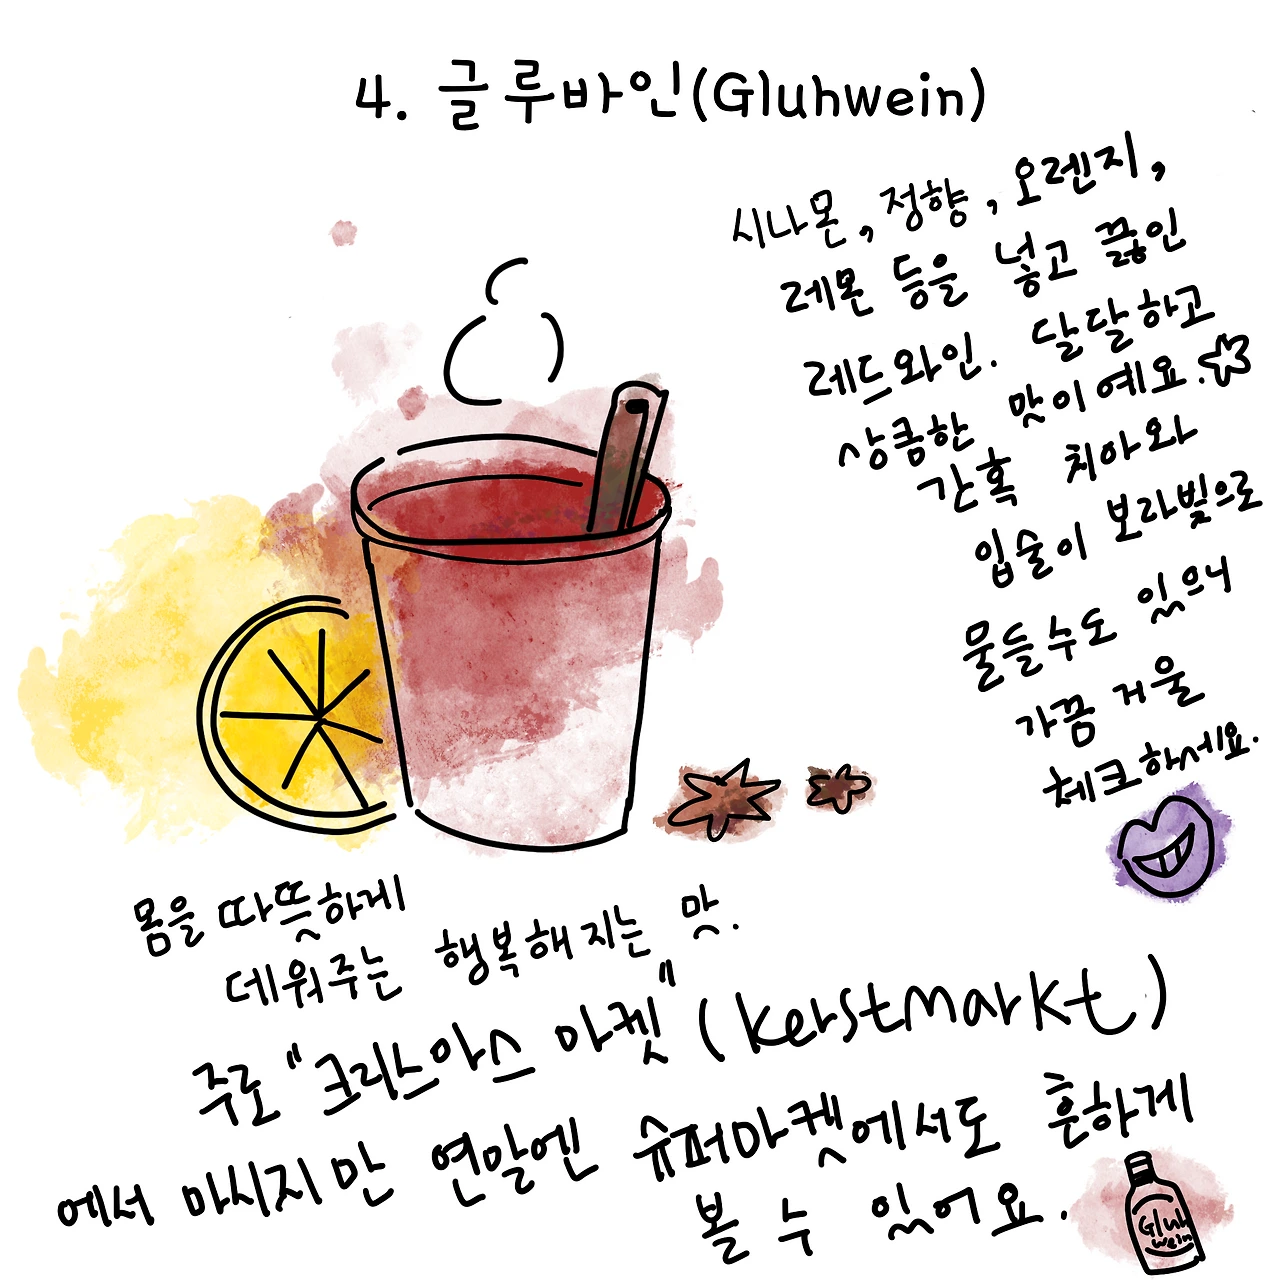 4. 글루바인(Gluhwein)
시나몬, 정향, 오렌지,
레몬 등을 넣고 끓인
레드와인. 달달하고
상큼한 맛이예요.
간혹 치아와
입술이 보라빛으로
물들수도 있으니
가끔 거울
체크하세요.
몸을 따뜻하게
데워주는 행복해지는 맛.
주로 "크리스마스 마켓" (kerstmarkt)
에서 마시지만 연말엔 슈퍼마켓에서도 흔하게
볼 수 있어요.
Gluh
wein